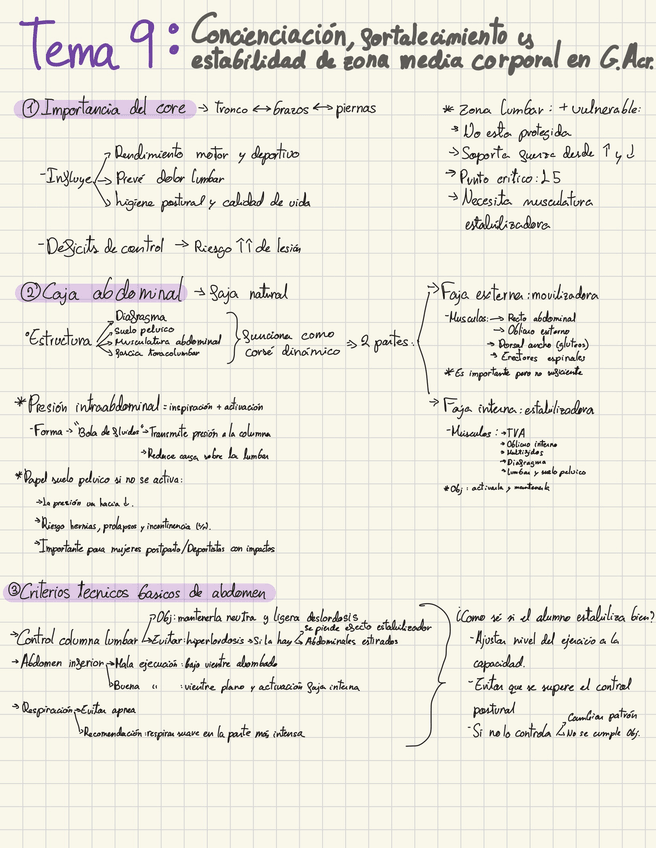 Tema 9:
Concienciación, fortalecimiento y
estabilidad de zona media corporal en G.Acr.
① Importancia del core → tronco ↔ brazos ↔ piernas
- Influye
→ Rendimiento motor y deportivo
→ Prevé dolor lumbar
→ higiene postural y calidad de vida
- Deficits de control → Riesgo ↑↑ de lesión
* Zona lumbar: + vulnerable:
→ No esta protegida
→ Soporta fuerza desde ↑ y ↓
→ Punto critico: L5
→ Necesita musculatura
estabilizadora
② Caja abdominal → faja natural
° Estructura
Diafragma
Suelo pelvico
Musculatura abdominal
fascia toracolumbar
funciona como
corsé dinámico
⇒ 2 partes:
→ Faja externa: movilizadora
- Musculos: → Recto abdominal
→ Oblicuo externo
→ Dorsal ancho (gluteos)
→ Erectores espinales
* Es importante pero no suficiente
→ Faja interna: estabilizadora
- Músculos: → TVA
→ Oblicuo interno
→ Multífidos
→ Diafragma
→ Lumbar y suelo pelvico
* Obj: activarla y mantenerla
* Presión intraabdominal = inspiración + activación
- Forma → "Bola de fluidos" → Transmite presión a la columna
→ Reduce carga sobre la lumbar
* Papel suelo pelvico si no se activa:
→ La presión va hacia ↓.
→ Riesgo hernias, prolapsos y incontinencia
→ Importante para mujeres postparto/Deportistas con impactos
③ Criterios tecnicos basicos de abdomen
→ Control columna lumbar
→ Obj: mantenerla neutra y ligera deslordosis
→ Evitar: hiperlordosis → Si la hay
se pierde efecto estabilizador
Abdominales estirados
→ Abdomen inferior
→ Mala ejecución: bajo vientre abombado
→ Buena " : vientre plano y activación faja interna
→ Respiración
→ Evitar apnea
→ Recomendación: respirar suave en la parte más intensa
¿Como sé si el alumno estabiliza bien?
- Ajustar nivel del ejercicio a la
capacidad.
- Evitar que se supere el control
postural
- Si no lo controla
Cambiar patrón
No se cumple Obj.